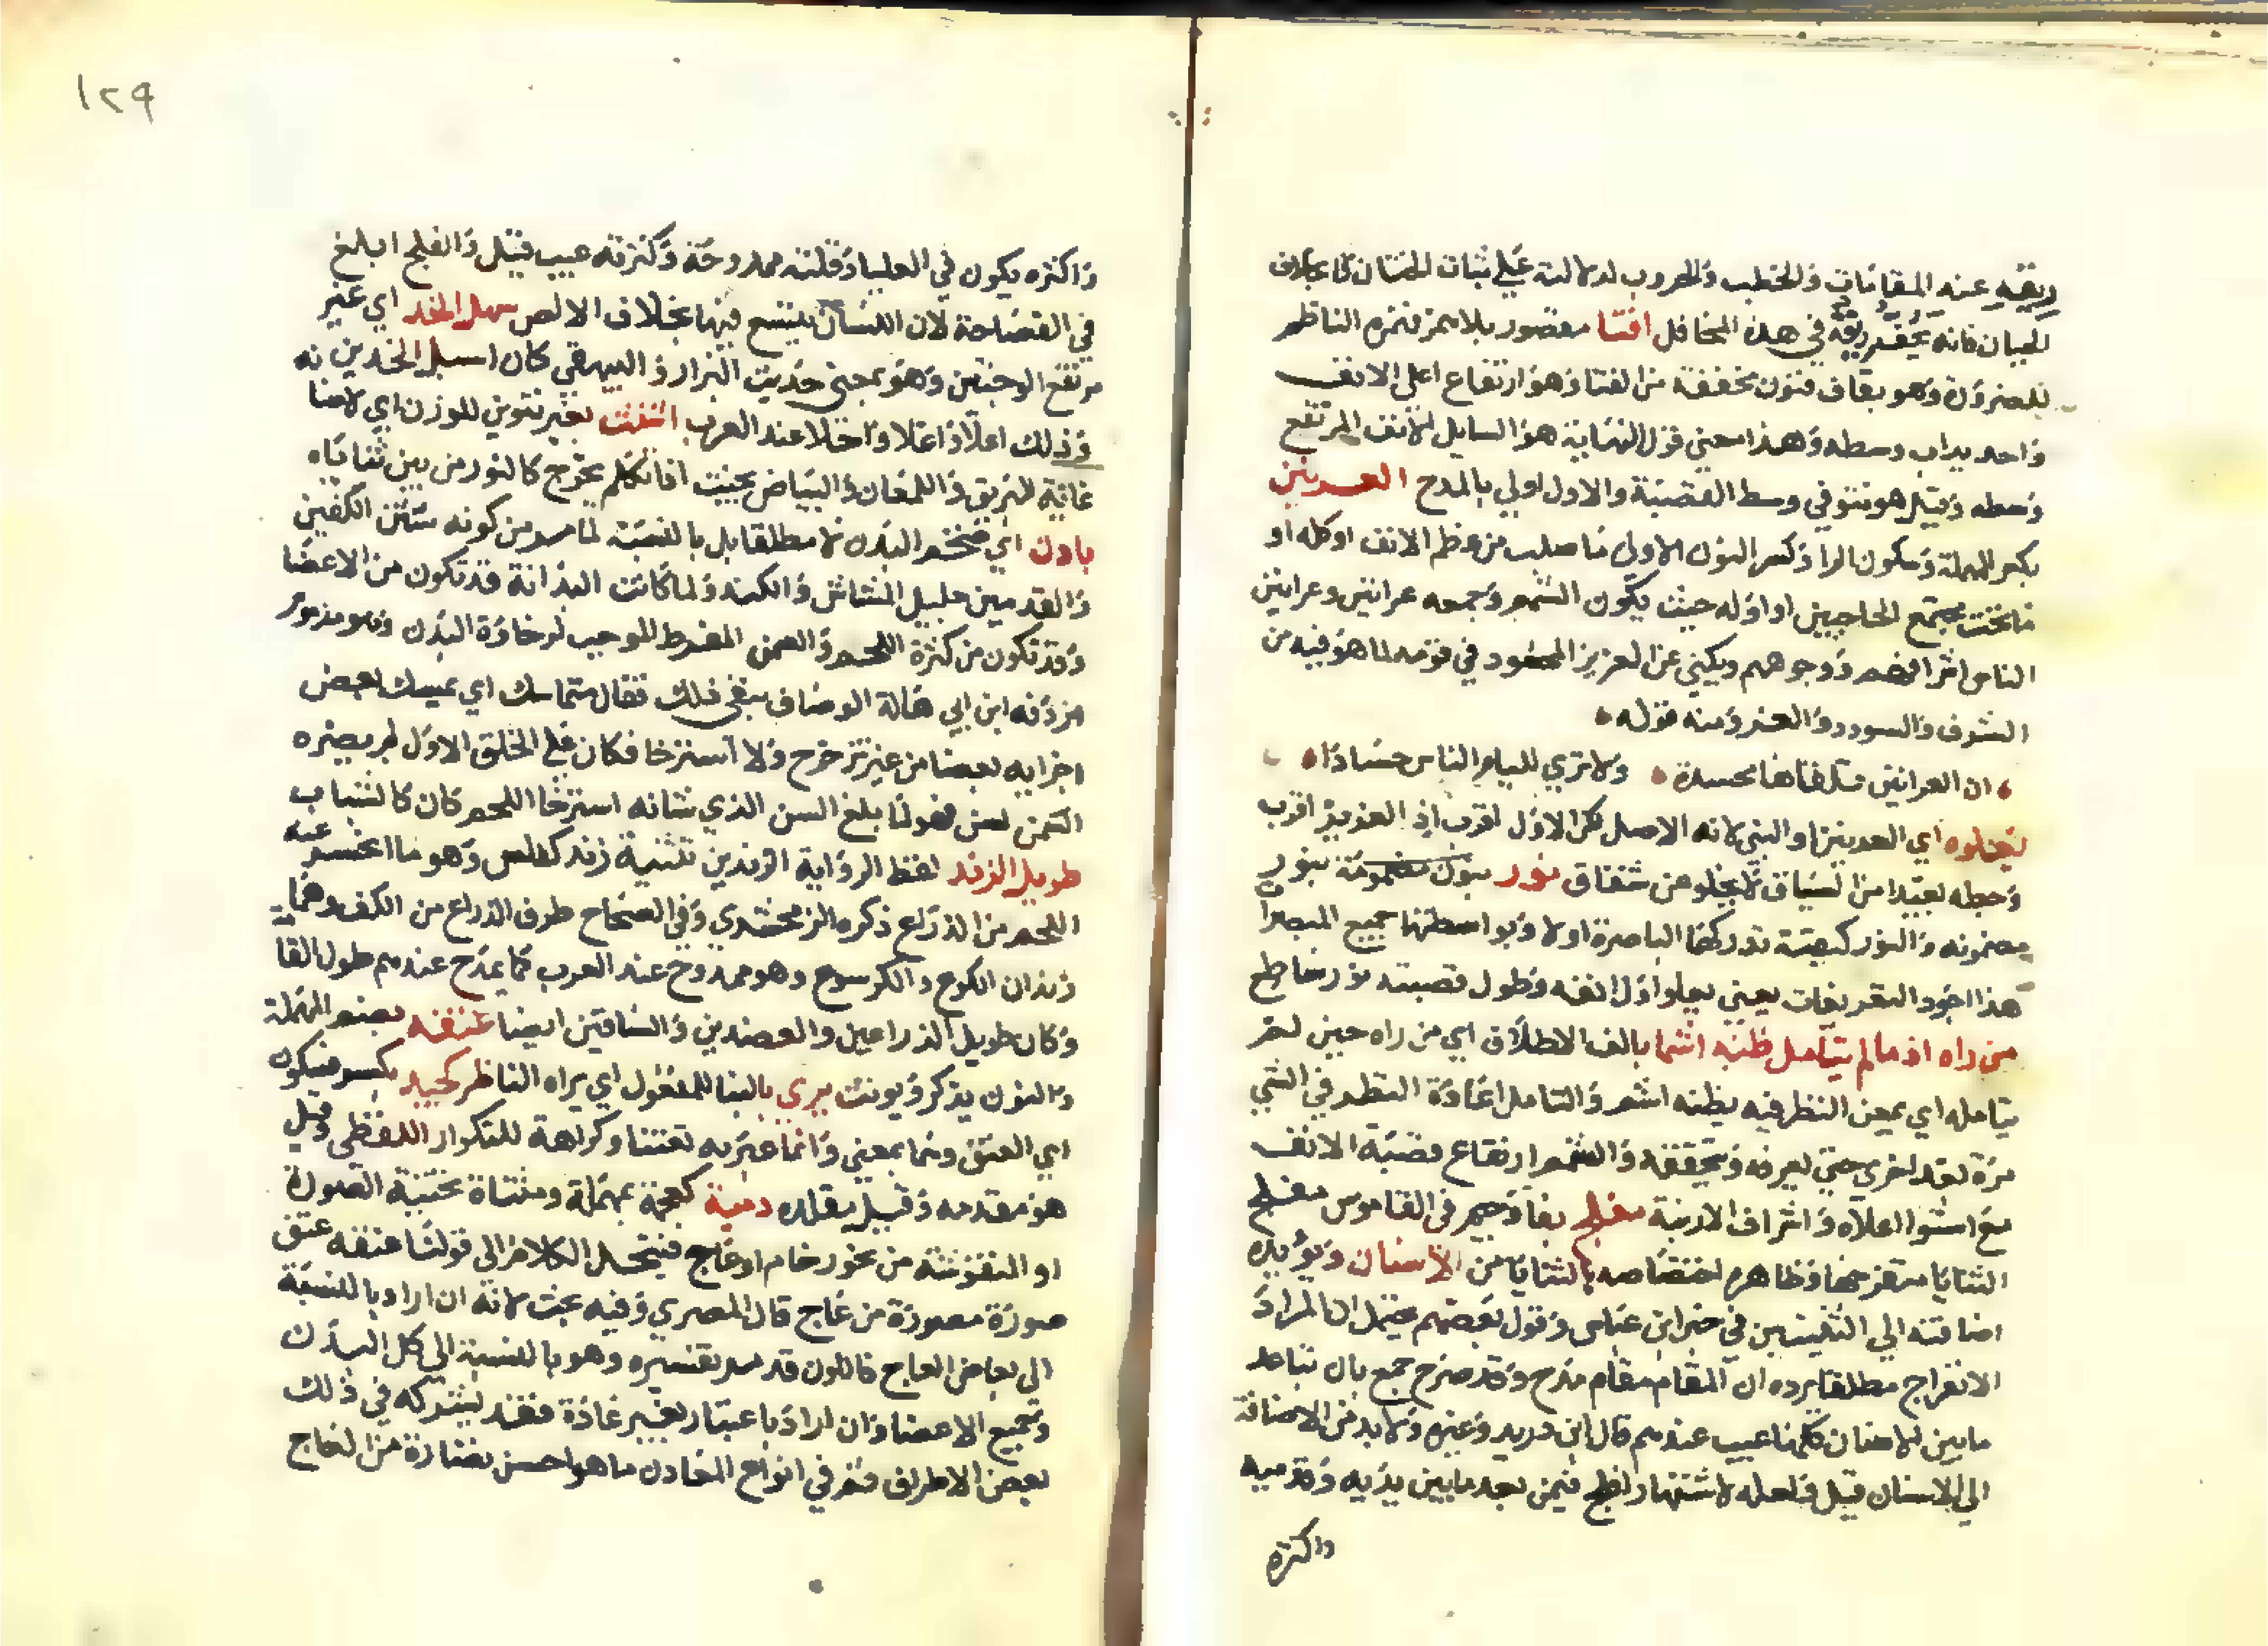 ريقه عند المقامات والخطب والحروب لدلالته علي ثبات الجنان بخلاف
الجبان فانه يجف ريقه في هذه المحافل اقنا مقصور بلا همز فهمزه الناظم
للضرورة وهو بقاف فنون مخففة من القنا وهو ارتفاع اعلي الانف
واحديداب وسطه وهذا معني قول النهاية هو السايل الانف المرتفع
وسطه وقيل هو نتو في وسط القصبة والاول اولي بالمدح العرنين
بكسر المهملة وسكون الرا وكسر النون الاولي ما صلب من عظم الانف او كله او
ما تحت مجتمع الحاجبين او اوله حيث يكون الشمم وجمعه عرانين وعرانين
الناس اشرافهم ووجوههم ويكني عن العزيز المحسود في قومه لما هو فيه من
الشرف والسودد والعز ومنه قوله
ان العرانين تلقاها محسدة ولا تري للئام الناس حسادا
يعلوه اي العرنين او النبي لانه الاصل لكن الاول اقرب اذ العرنين اقرب
وجعله بعيدا من السياق لا يخلو عن شقاق نور بنون مضمومة بنور
مضمونه والنور كيفية تدركها الباصرة اولا وبواسطتها جميع المبصرات
هذا اجود التعريفات يعني يعلو اول انفه وطول قصبته نور ساطع
من راه اذ ما لم يتامل ظنه اشما بالف الاطلاق اي من راه حين لم
يتامله اي يمعن النظر فيه يظنه اشم والتامل اعادة النظر في الشي
مرة بعد اخري حتي يعرفه ويتحققه والشمم ارتفاع قصبة الانف
مع استوا اعلاه واشراف الارنبة مفلج بفا وجيم في القاموس مفلج
الثنايا متفرجها وظاهره اختصاصه بالثنايا من الاسنان ويؤيده
اضافته الي الثنيتين في خبر ابن عباس وقول بعضهم يحتمل ان المراد
الانفراج مطلقا يرده ان المقام مقام مدح وقد صرح جمع بان تباعد
ما بين الاسنان كلها عيب عندهم قال ابن دريد وغيره ولا بد من الاضافة
الي الاسنان قيل فلعله لاشتهار افلج فيمن بعد ما بين يديه وقدميه
واكثره
١٢٩
واكثره يكون في العليا وقلته ممدوحة وكثرته عيب قيل والفلج ابلغ
في الفصاحة لان اللسان يتسع فيها بخلاف الالص سهل الخد اي غير
مرتفع الوجنتين وهو بمعني حديث البزار والبيهقي كان اسيل الخدين
وذلك اعلا واغلا واحلا عند العرب اشنب بغير تنوين للوزن اي لاسنا
غاية البريق واللمعان والبياض بحيث اذا تكلم يخرج كالنور من بين ثناياه
بادن اي ضخم البدن لا مطلقا بل بالنسبة لما مر من كونه شثن الكفين
والقدمين جليل المشاش والكتد ولما كانت البدانة قد تكون من الاعضا
وقد تكون من كثرة اللحم والسمن المفرط الموجب لرخاوة البدن وهو مذموم
مردفه ابن ابي هالة الوصاف بنفي ذلك فقال متماسك اي يمسك بعض
اجزايه بعضا من غير ترجرج ولا استرخا فكان علي الخلق الاول لم يضره
السمن لمن هو لما بلغ السن الذي شانه استرخا اللحم كان كالشباب
طويل الزند لفظ الرواية الزندين تثنية زند كفلس وهو ما انحسر عنه
اللحم من الذراع ذكره الزمخشري وفي الصحاح طرف الذراع من الكف وهما
زندان الكوع والكرسوع وهو ممدوح عند العرب كما يمدح عندهم طول القا
وكان طويل الذراعين والعضدين والساقين ايضا عنقه بضم المهملة
والنون يذكر ويونث يري بالبنا للمفعول اي يراه الناظر كجيد بكسر فسكون
اي العنق وهما بمعني وانما عبر به تفننا وكراهة للتكرار اللفظي وقيل
هو مقدمه وقيل مقلده دمية كعجمة بمهملة ومثناة تحتية الصورة
او المنقوشة من نحو رخام او عاج فينحل الكلام الي قولنا عنقه عنق
صورة مصورة من عاج قال المصري وفيه بحث لانه ان اراد بالنسبة
الي بياض العاج فاللون قد مر تفسيره وهو بالنسبة الي كل البدن
وجميع الاعضا وان اراد باعتبار غيره عادة فقد يشركه في ذلك
بعض الاطراف فثم في انواع المعادن ما هو احسن نضارة من العاج